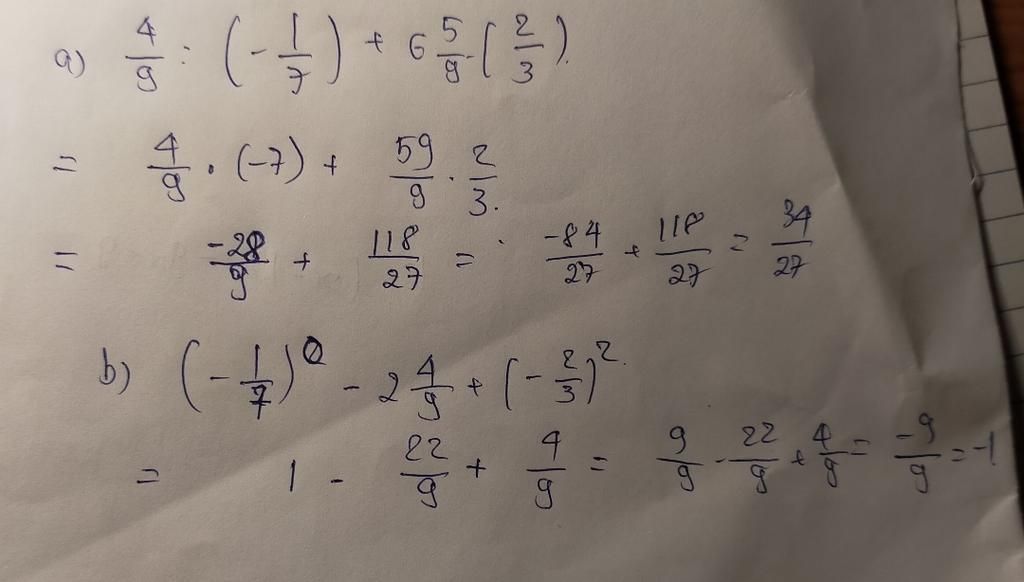 a) 4/9 : (-1/7) + 6 5/9 · (2/3).
= 4/9 · (-7) + 59/9 · 2/3.
= -28/9 + 118/27 = -84/27 + 118/27 = 34/27
b) (-1/7)^0 - 2 4/9 + (-2/3)^2.
= 1 - 22/9 + 4/9 = 9/9 - 22/9 + 4/9 = -9/9 = -1